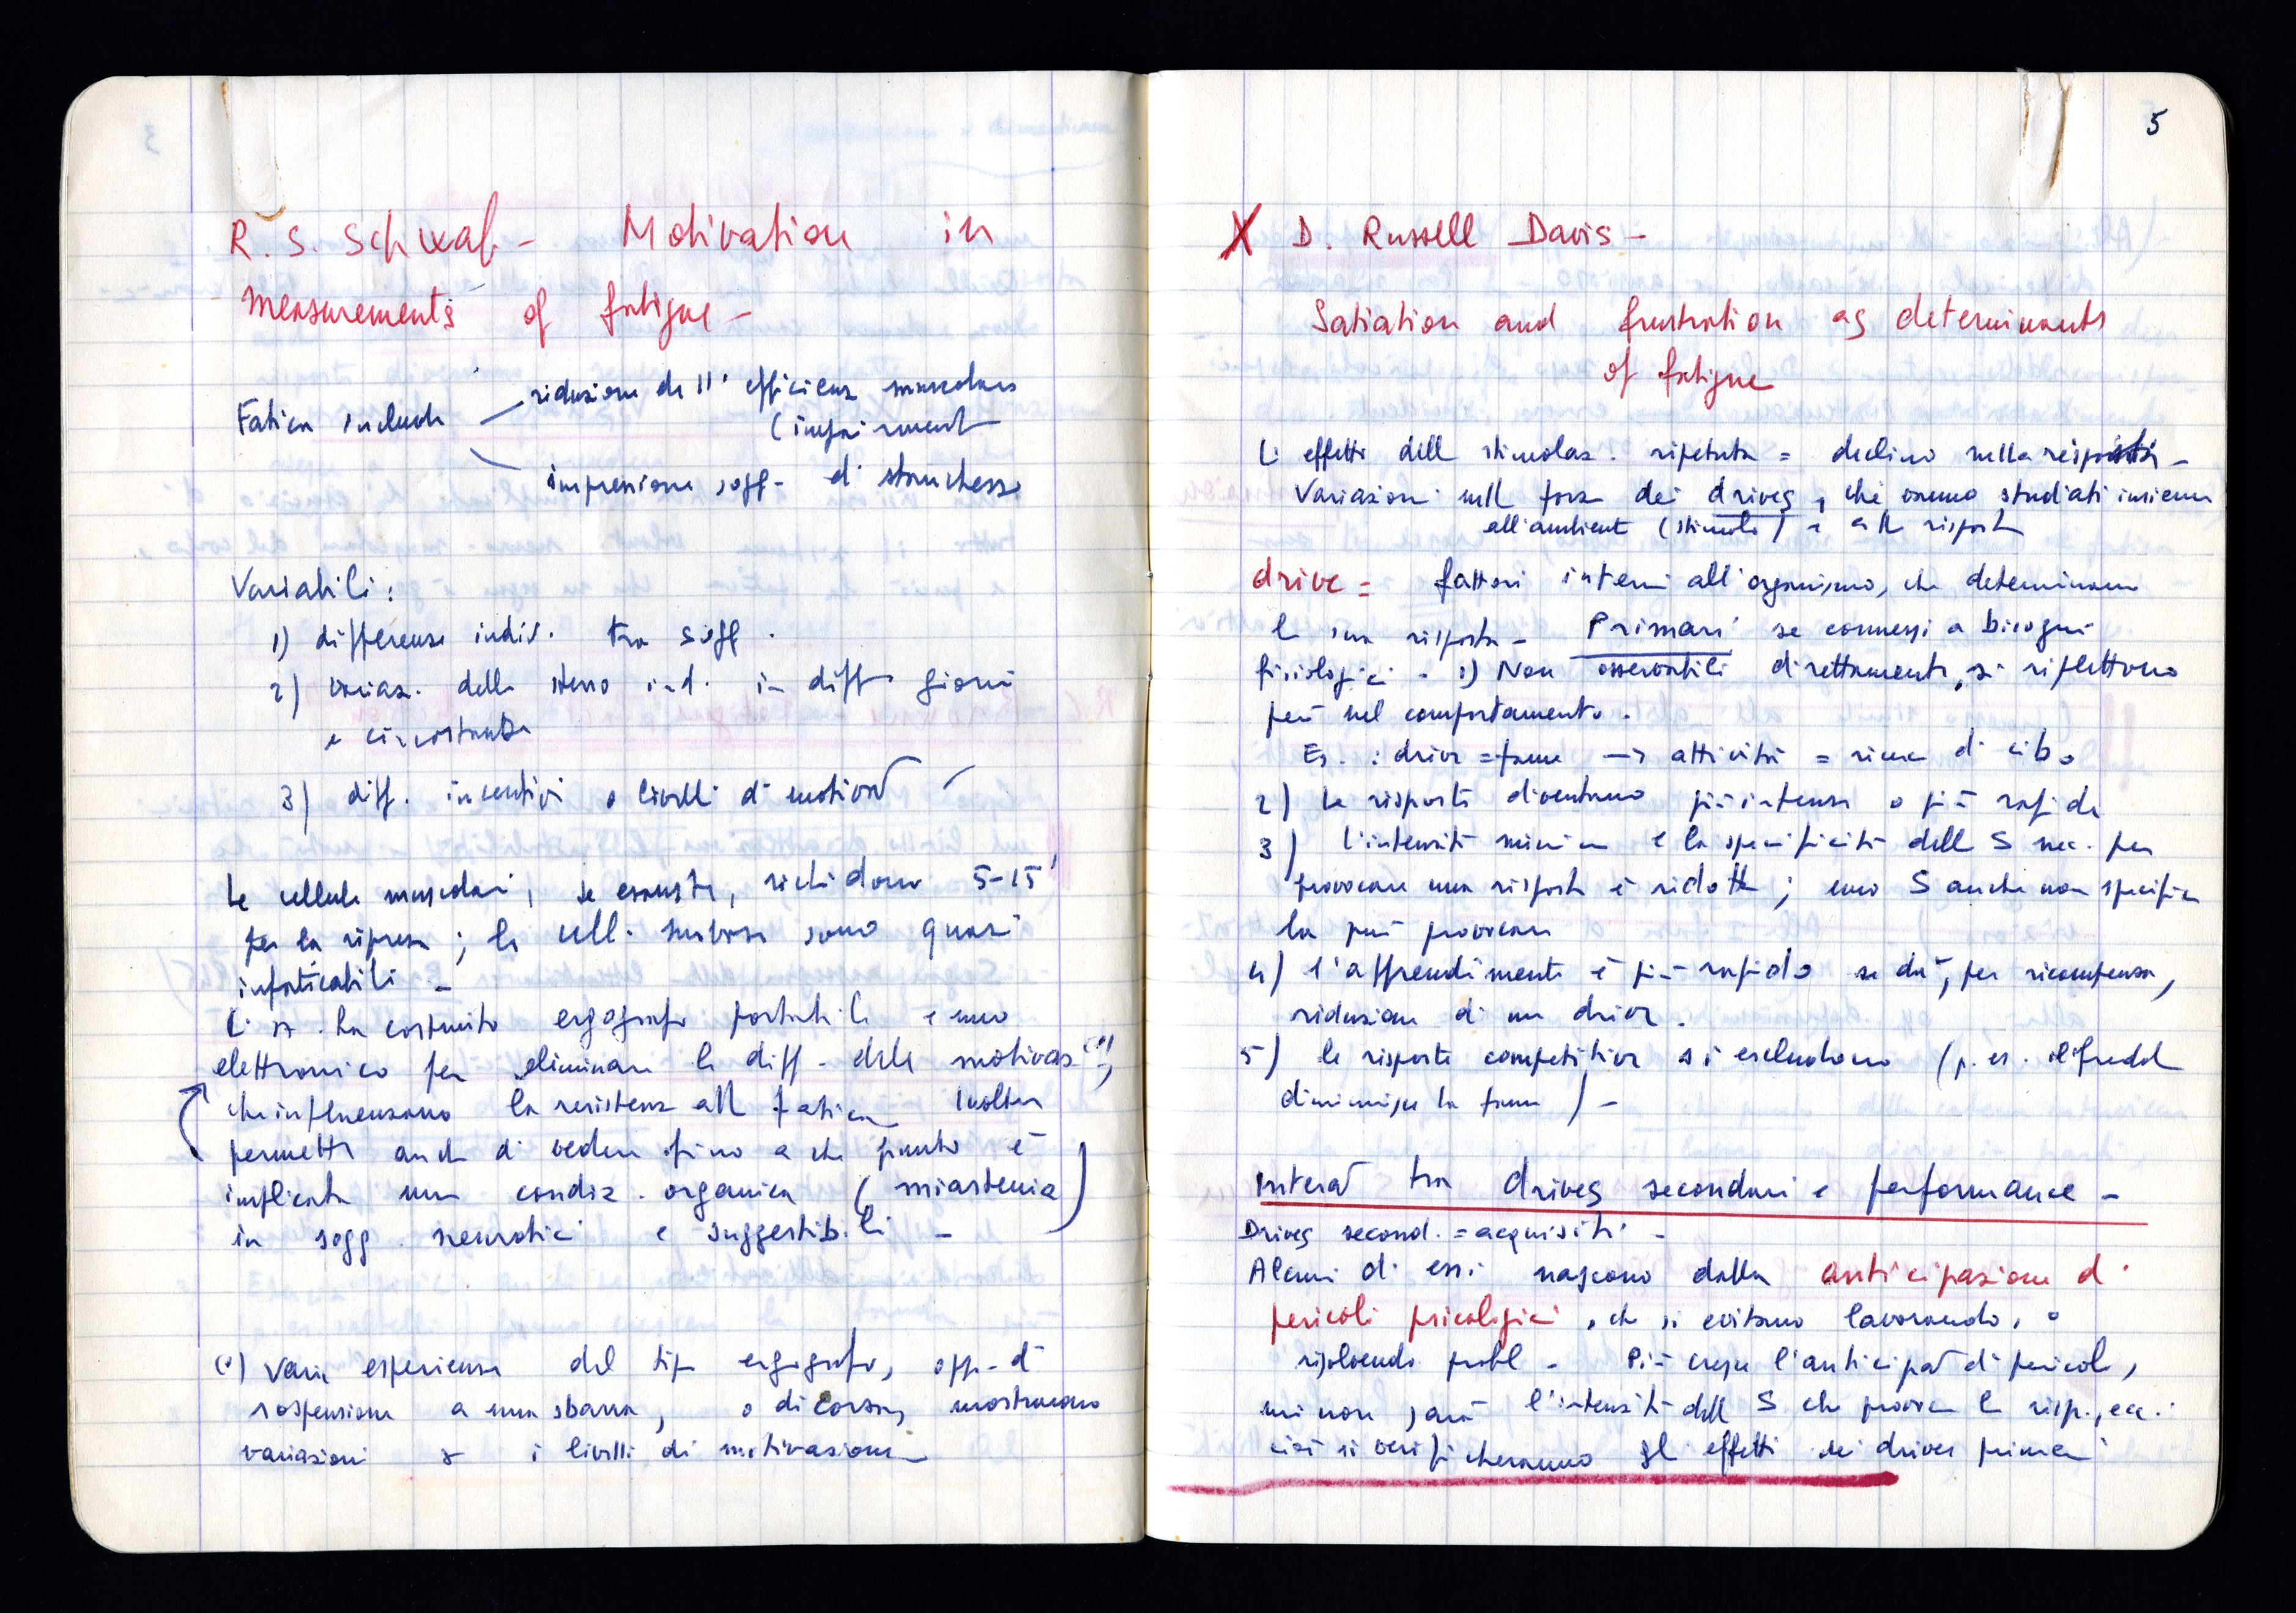 R. S. Schwab - Motivation in
measurements of fatigue -
Fatica include
riduzione dell' efficienza muscolare
(impairment
impressione sogg. di stanchezza
Variabili:
1) differenze indiv. tra sogg.
2) variaz. dello stesso ind. in diff. giorni
e circostanze
3) diff. incentivi o livelli di motivaz
Le cellule muscolari, se esauste, richiedono 5-15'
per la ripresa; le cell. nervose sono quasi
infaticabili -
L' A. ha costruito ergografo portatile e uno
elettronico per eliminare le diff. della motivaz. (°),
che influenzano la resistenza alla fatica Inoltre
permette anche di vedere fino a che punto è
implicata una condiz. organica (miastenia)
in sogg. neurotici e suggestibili -
(°) Varie esperienze del tipo ergografo, opp. di
sospensione a una sbarra, o di corsa, mostravano
variazioni i livelli di motivazione
5
X D. Russell Davis -
Satiation and frustration as determinants
of fatigue
Gli effetti della stimolaz. ripetuta = declino nella risposta -
Variazioni nella forza dei drives, che vanno studiati insieme
all'ambiente (stimolo) e alla risposta
drive = fattori interni all'organismo, che determinano
la sua risposta - Primari se connessi a bisogni
fisiologici. 1) Non osservabili direttamente, si riflettono
però nel comportamento.
Es.: drive = fame → attività = ricerca di cibo
2) Le risposte diventano più intense o più rapide
3) L'intensità minima e la specificità dello S nec. per
provocare una risposta è ridotta; uno S anche non specifico
la può provocare
4) L'apprendimento è più rapido se dà, per ricompensa,
riduzione di un drive.
5) le risposte competitive si escludono (p. es. il freddo
diminuisce la fame) -
Interaz tra drives secondari e performance -
Drives second. = acquisiti -
Alcuni di essi nascono dalla anticipazione di
pericoli psicologici, che si evitano lavorando, o
risolvendo probl - Più cresce l'anticipaz di pericolo,
minore sarà l'intensità dello S che provoca la risp., ecc.:
cioè si verificheranno gli effetti dei drives primari